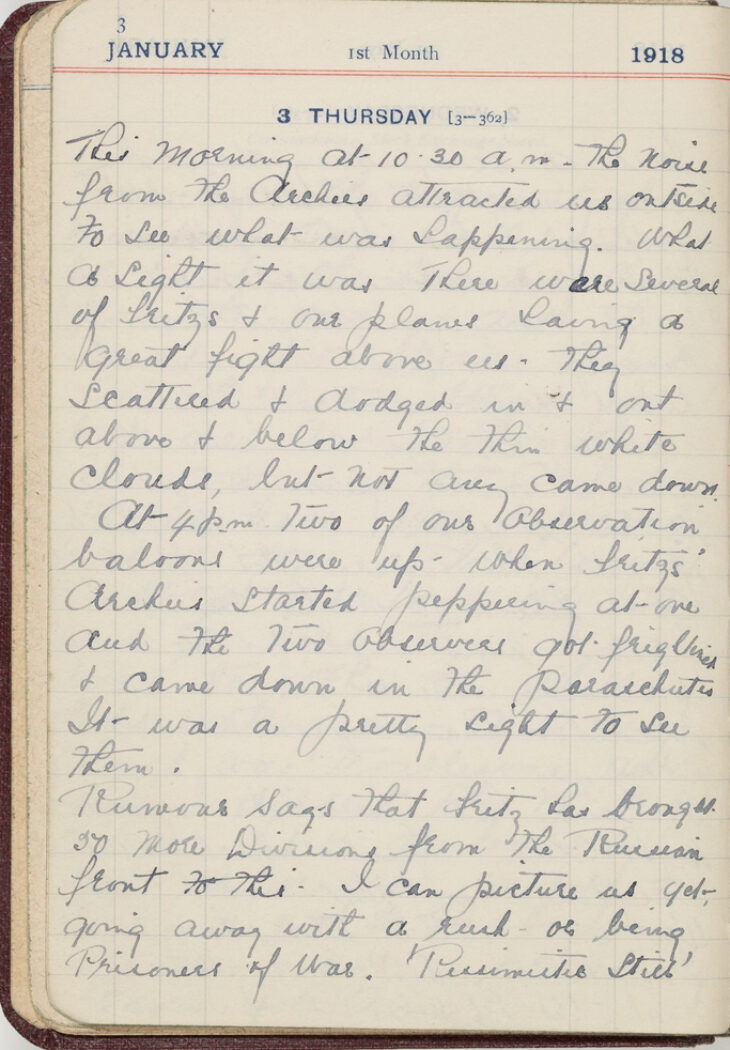 3
JANUARY 1st Month 1918
3 THURSDAY [3-362]
This morning at 10.30 a.m - the noise
from the Archies attracted us outside
to see what was happening. What
a sight it was There were several
of Fritzs & our planes having a
great fight above us - They
scattered & dodged in & out
above & below the thin white
clouds, but not any came down.
At 4 pm Two of our Observation
baloons were up - when Fritzs'
Archies started peppering at one
and the two observers got frightened
& came down in the Paraschutes
It was a pretty sight to see
them.
Rumour says that Fritz has brought
50 more Divisions from the Russian
front to this. I can picture us yet
going away with a rush - or being
Prisoners of War. 'Pessimistic Still'